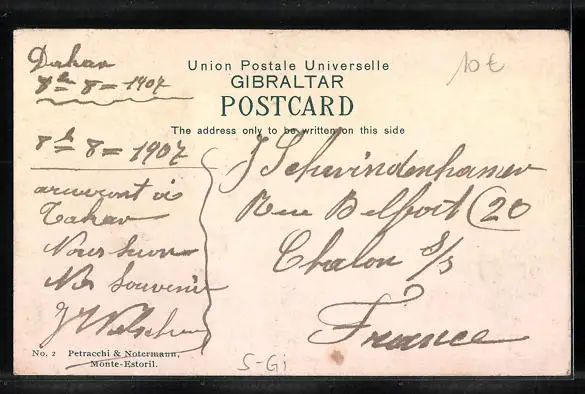 Union Postale Universelle
GIBRALTAR
POSTCARD
The address only to be written on this side
10 €
Dakar
8 = 8 = 1907
8 = 8 = 1907
arriveront à
Dakar
Nous
Nos Souvenir
J Schwindenhamer
Rue Belfort (20
Chalon s/s
France
No. 2 Petracchi & Notermann,
Monte-Estoril.
S-Gi